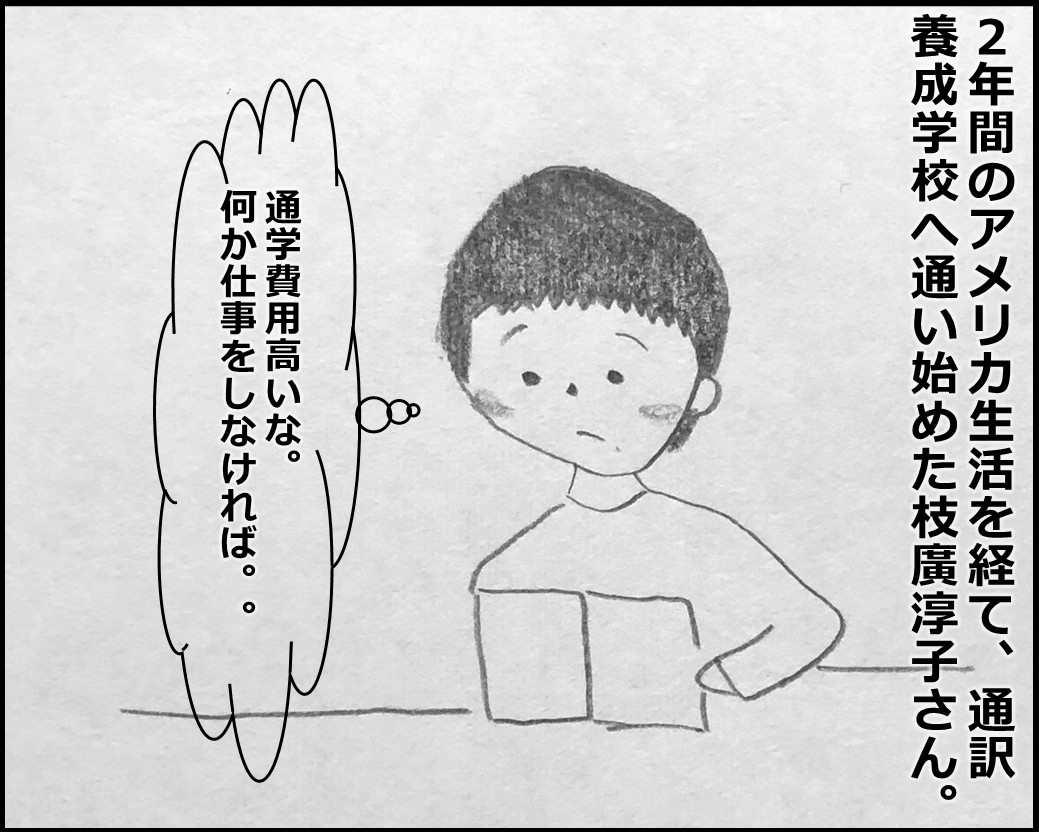 2年間のアメリカ生活を経て、通訳
養成学校へ通い始めた枝廣淳子さん。
通学費用高いな。
何か仕事をしなければ。。